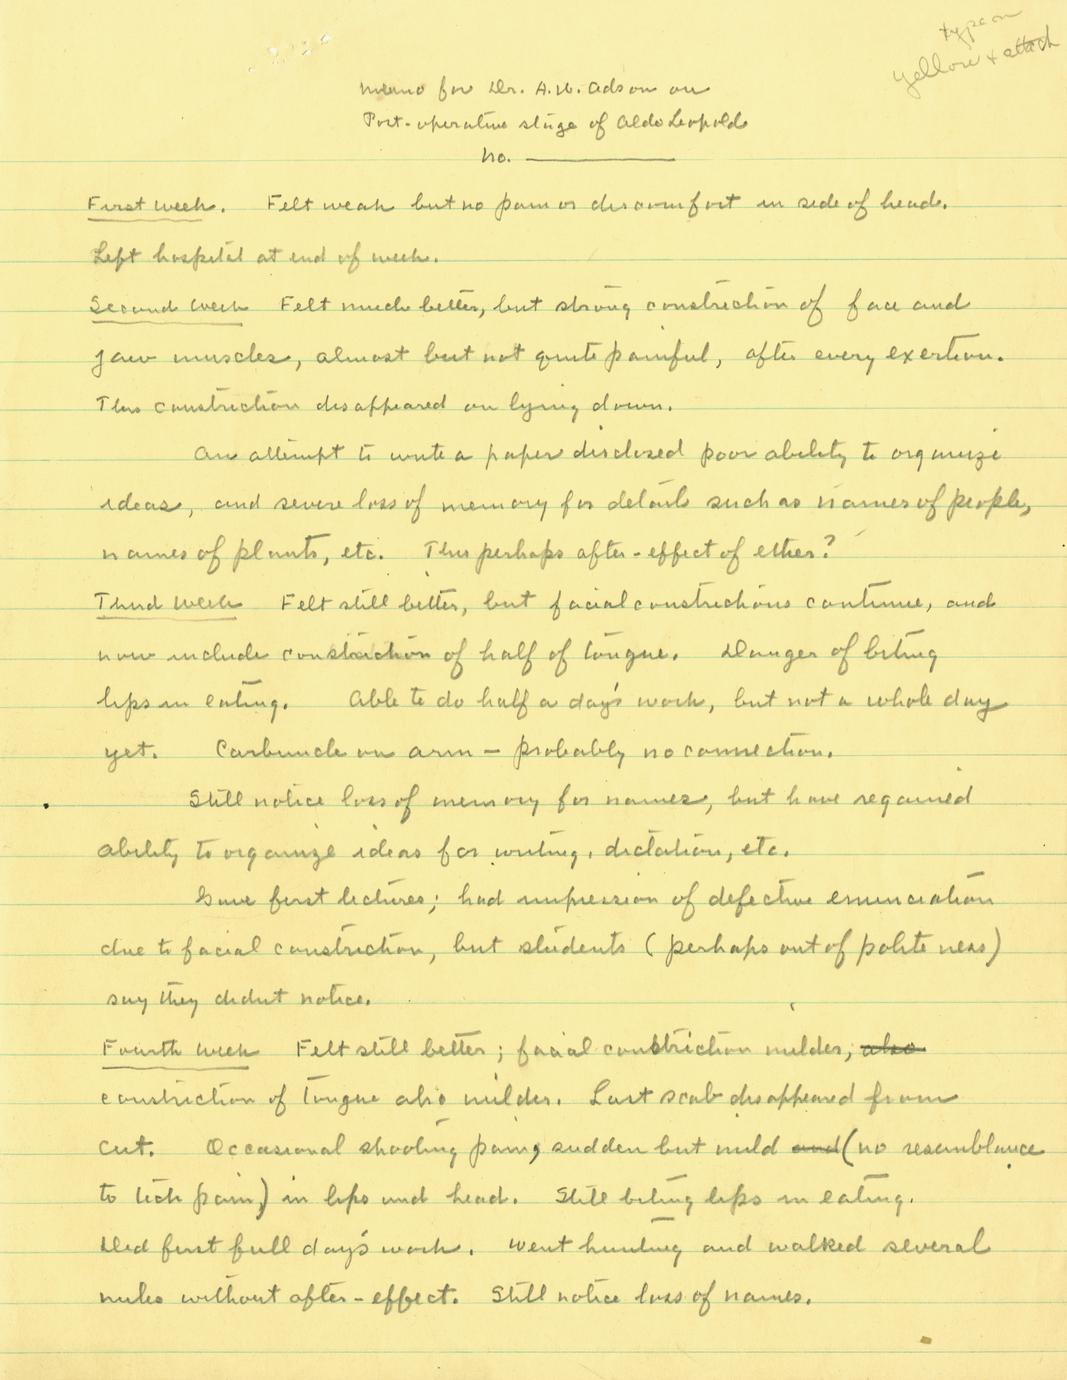 type on
yellow + attach
Memo for Dr. A.W. Adson on
Post-operative stage of Aldo Leopold
No.
First week. Felt weak but no pain or discomfort in side of head.
Left hospital at end of week.
Second Week Felt much better, but strong constriction of face and
jaw muscles, almost but not quite painful, after every exertion.
This constriction disappeared on lying down.
An attempt to write a paper disclosed poor ability to organize
ideas, and severe loss of memory for details such as names of people,
names of plants, etc. This perhaps after-effect of ether?
Third Week Felt still better, but facial constrictions continue, and
now include constriction of half of tongue. Danger of biting
lips in eating. Able to do half a day's work, but not a whole day
yet. Carbuncle on arm - probably no connection.
Still notice loss of memory for names, but have regained
ability to organize ideas for writing, dictation, etc.
Gave first lectures; had impression of defective enunciation
due to facial constriction, but students (perhaps out of politeness)
say they didnt notice.
Fourth Week Felt still better; facial constriction milder, also
constriction of tongue also milder. Last scab disappeared from
cut. Occasional shooting pain, sudden but mild and (no resemblance
to tick pain) in lips and head. Still biting lips in eating.
Did first full day's work. Went hunting and walked several
miles without after-effect. Still notice loss of names.